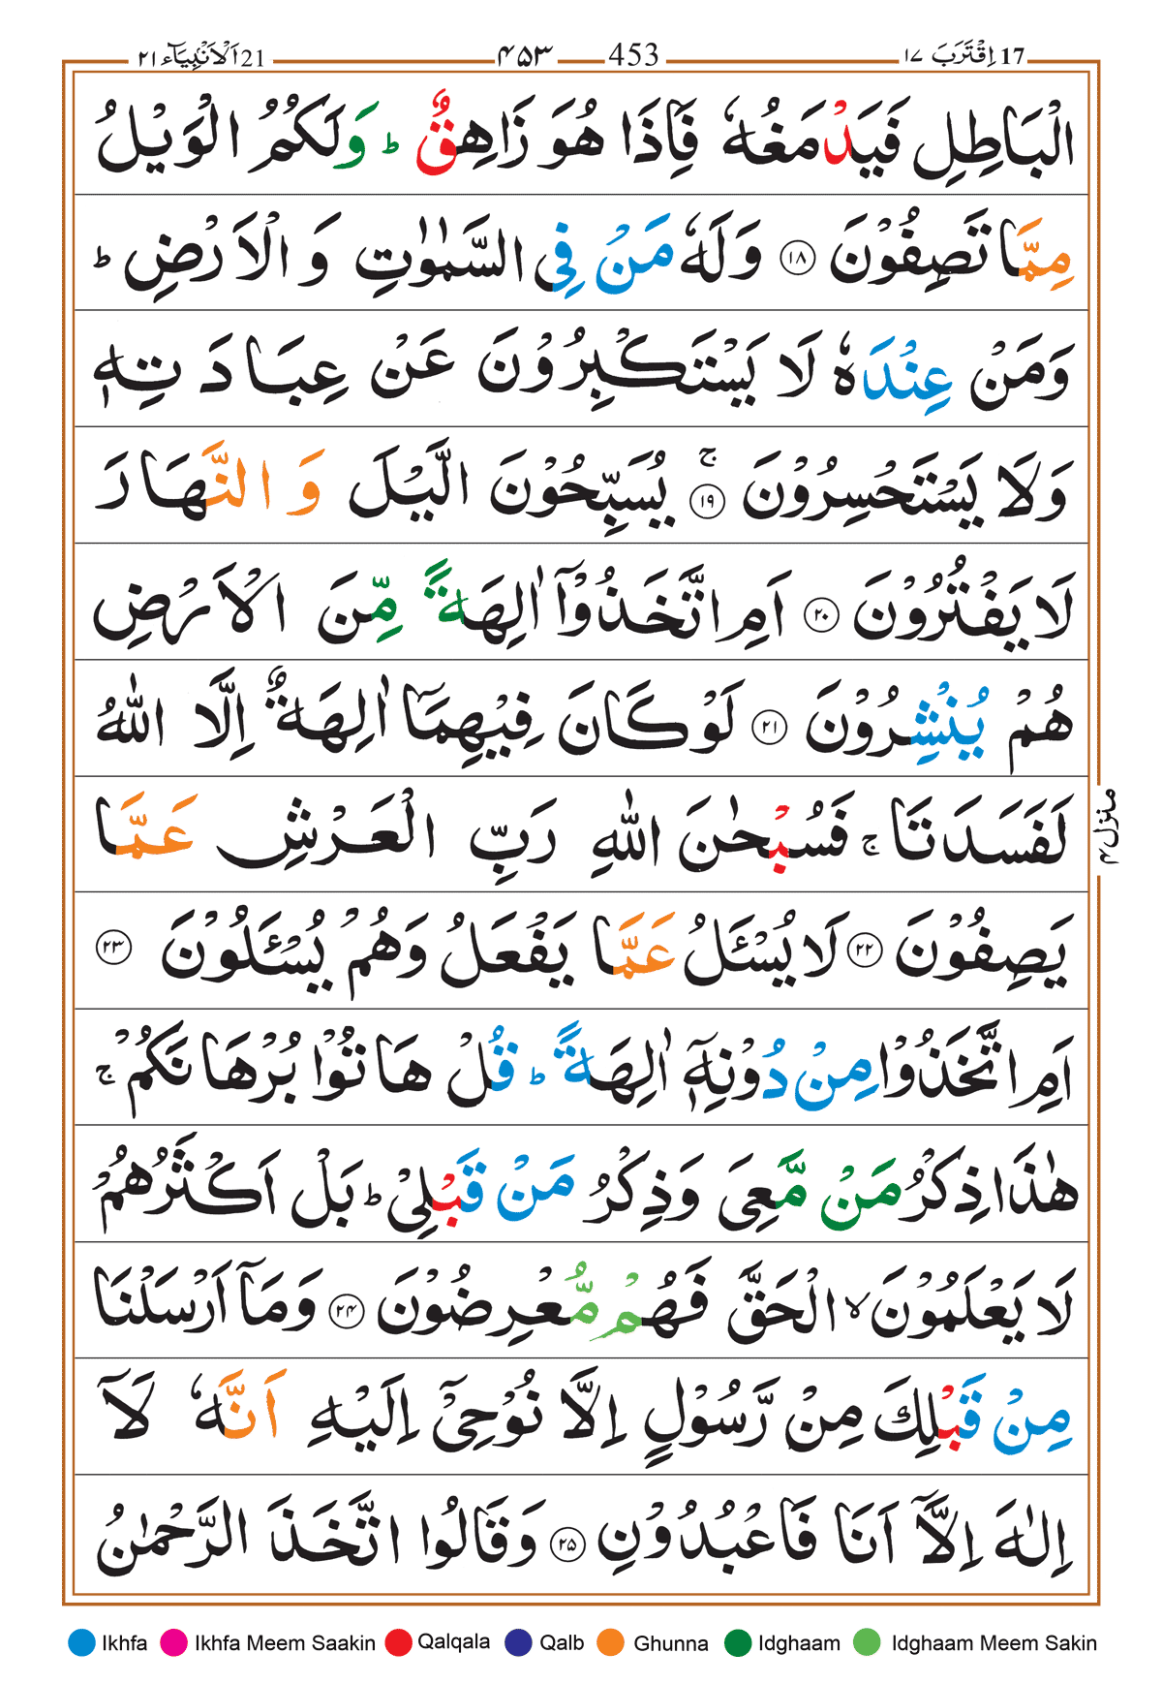 17 اِقْتَرَبَ ١٧ 453 ۴۵۳ 21 اَلْاَنْۢبِيَآء ٢١
الْبَاطِلِ فَيَدْمَغُهٗ فَاِذَا هُوَ زَاهِقٌ ؕ وَلَكُمُ الْوَيْلُ
مِمَّا تَصِفُوْنَ ﴿۱۸﴾ وَلَهٗ مَنْ فِي السَّمٰوٰتِ وَ الْاَرْضِ ؕ
وَمَنْ عِنْدَهٗ لَا يَسْتَكْبِرُوْنَ عَنْ عِبَادَتِهٖ
وَلَا يَسْتَحْسِرُوْنَ ۚ ﴿۱۹﴾ يُسَبِّحُوْنَ الَّيْلَ وَ النَّهَارَ
لَا يَفْتُرُوْنَ ﴿۲۰﴾ اَمِ اتَّخَذُوْۤا اٰلِهَةً مِّنَ الْاَرْضِ
هُمْ يُنْشِرُوْنَ ﴿۲۱﴾ لَوْ كَانَ فِيْهِمَاۤ اٰلِهَةٌ اِلَّا اللّٰهُ
لَفَسَدَتَا ۚ فَسُبْحٰنَ اللّٰهِ رَبِّ الْعَرْشِ عَمَّا
يَصِفُوْنَ ﴿۲۲﴾ لَا يُسْـَٔلُ عَمَّا يَفْعَلُ وَهُمْ يُسْـَٔلُوْنَ ﴿۲۳﴾
اَمِ اتَّخَذُوْا مِنْ دُوْنِهٖۤ اٰلِهَةً ؕ قُلْ هَاتُوْا بُرْهَانَكُمْ ۚ
هٰذَا ذِكْرُ مَنْ مَّعِيَ وَذِكْرُ مَنْ قَبْلِيْ ؕ بَلْ اَكْثَرُهُمْ
لَا يَعْلَمُوْنَ ۙ الْحَقَّ فَهُمْ مُّعْرِضُوْنَ ﴿۲۴﴾ وَمَاۤ اَرْسَلْنَا
مِنْ قَبْلِكَ مِنْ رَّسُوْلٍ اِلَّا نُوْحِيْۤ اِلَيْهِ اَنَّهٗ لَاۤ
اِلٰهَ اِلَّاۤ اَنَا فَاعْبُدُوْنِ ﴿۲۵﴾ وَقَالُوا اتَّخَذَ الرَّحْمٰنُ
منزل ۴
Ikhfa Ikhfa Meem Saakin Qalqala Qalb Ghunna Idghaam Idghaam Meem Sakin